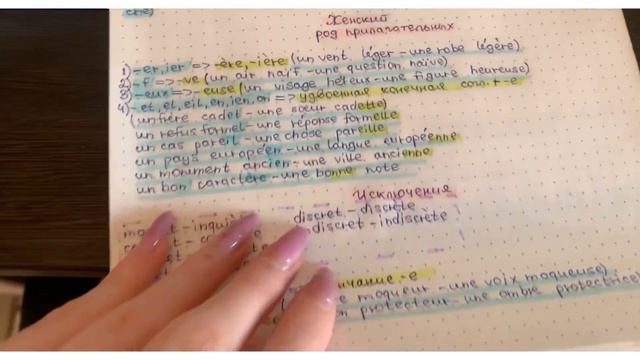 Женский
род прилагательных
1) -er, ier => -ère, -ière (un vent léger - une robe légère)
2) -f => -ve (un air naïf - une question naïve)
3) -eux => -euse (un visage heureux - une figure heureuse)
4) -et, el, eil, en, ien, on => удвоенная конечная согл. + -e
(un frère cadet - une sœur cadette)
un refus formel - une réponse formelle
un cas pareil - une chose pareille
un pays européen - une langue européenne
un monument ancien - une ville ancienne
un bon caractère - une bonne note
Исключения
discret - discrète
indiscret - indiscrète
-e
moqueur - une voix moqueuse)
protecteur - une ombre protectrice